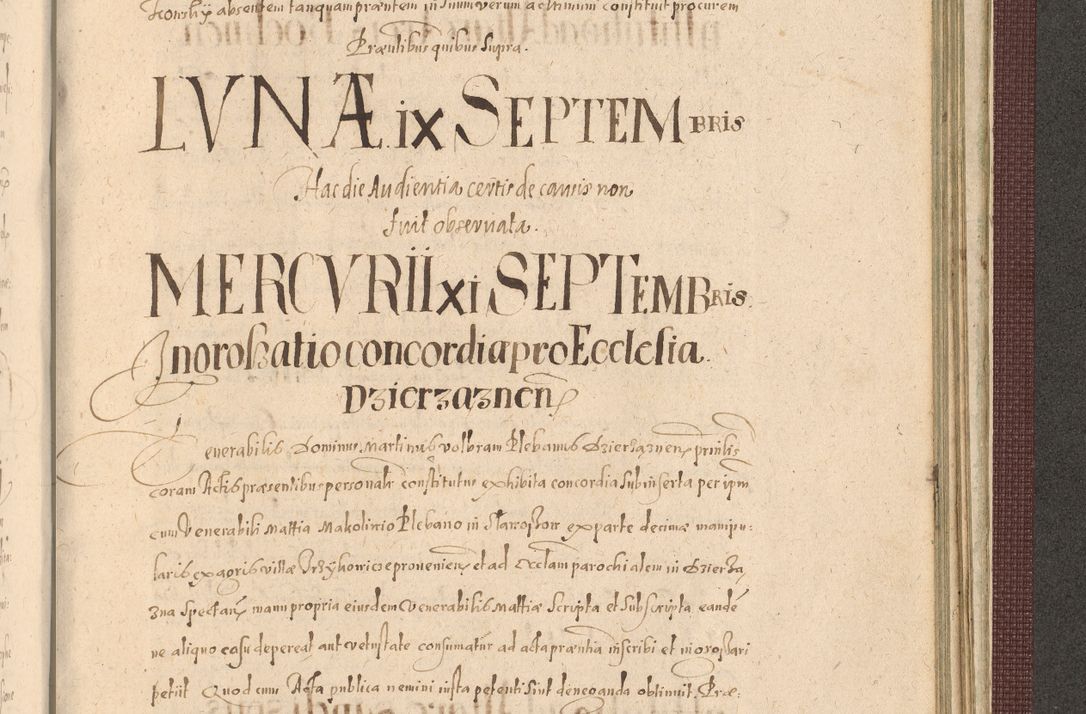 Konsky absentem tanquam præntem in Suum verum ac Itimum constituit procurem
Præntibus quibus supra.
LVNÆ ix SEPTEMBRIS
Hac die Audientia certis de causis non
fuit observata.
MERCVRII xi SEPTEMBRIS
Ingrossatio concordia pro Ecclesia
Dzierzaznen
Venerabilis Dominus Martinus Volbram Plebanus Dzierzaznen prnlis
coram Actis præsentibus personalr constitutus exhibita concordia Subinserta per ipm
cum Venerabili Mattia Makolinio Plebano in Staroszow ex parte decimæ manipu:
laris ex agris villæ Irzykowice provenien et ad Ecclam parochialem in Dzierżą
zna Spectan manu propria eiusdem Venerabilis Mattiæ Scripta et Subscripta eandē
ne aliquo casu depereat aut vetustate consumatur ad acta præntia inscribi et ingrossari
petiit Quod cum Acta publica nemini iusta petenti sint deneganda obtinuit. Præ: